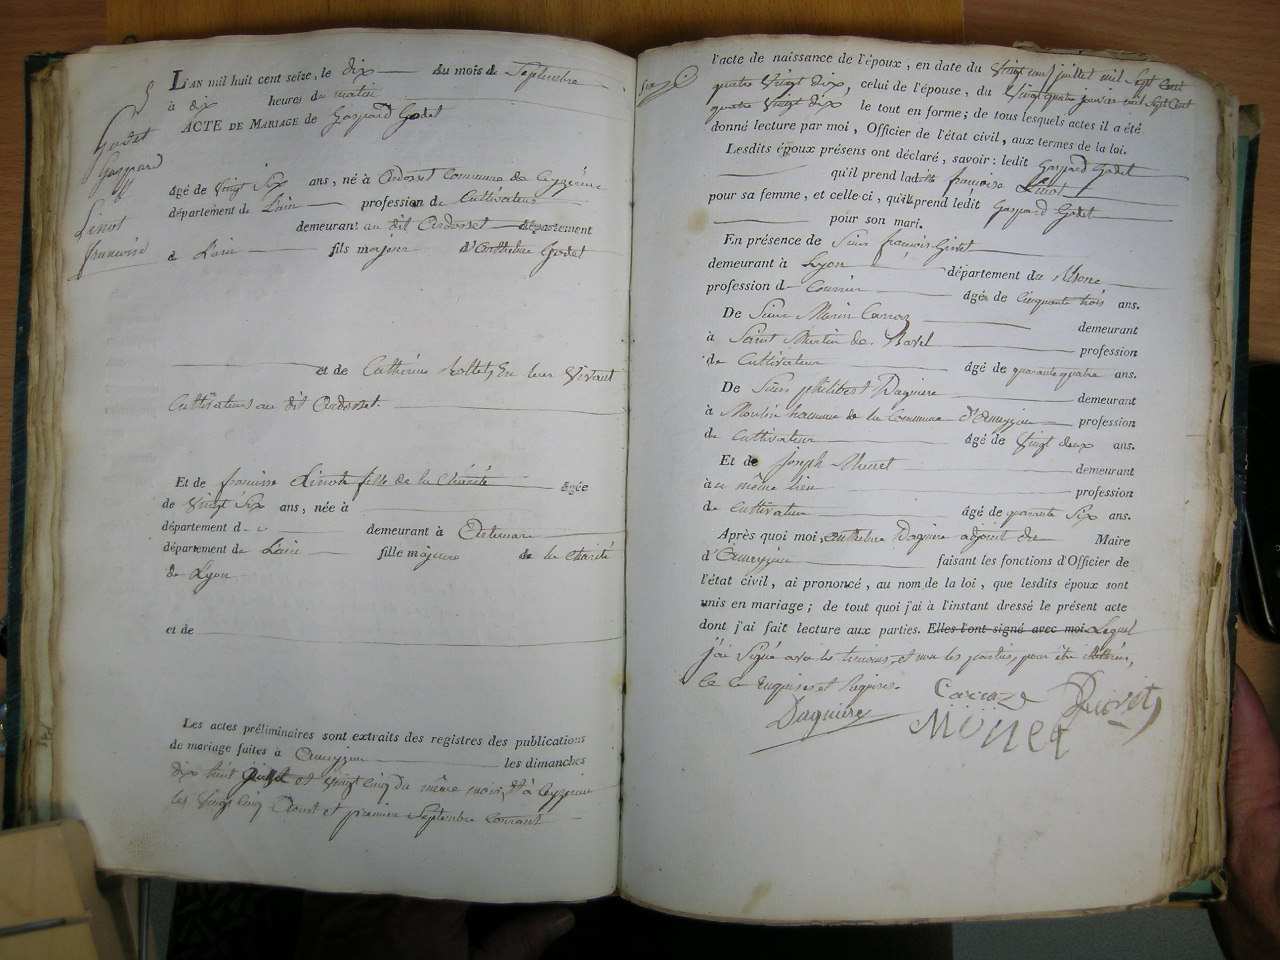 L'AN mil huit cent seize, le dix du mois de Septembre
à dix heures du matin
ACTE DE MARIAGE de Gaspard Godet
Godet
Gaspard
et
Linot
francoise
âgé de vingt Six ans, né à Ardosset Commune de Ceyzerieu
département de L'ain profession de Cultivateur
demeurant au dit Ardosset département
de L'ain fils majeur d'Anthelme Godet
et de Catherine en leur vivant
Cultivateurs au dit Ardosset.
Et de francoise Linot fille de la Charité âgée
de vingt Six ans, née à
département d demeurant à
département de L'ain fille majeure de la charité
de Lyon
et de
Les actes préliminaires sont extraits des registres des publications
de mariage faites à Ameyzieu les dimanches
dix huit et vingt cinq du même mois, et à Ceyzerieu
les vingt cinq Aoust et premier Septembre courant
l'acte de naissance de l'époux, en date du vingt un juillet mil Sept Cent
quatre vingt dix, celui de l'épouse, du vingt quatre janvier mil Sept Cent
quatre vingt dix le tout en forme; de tous lesquels actes il a été
donné lecture par moi, Officier de l'état civil, aux termes de la loi.
Lesdits époux présens ont déclaré, savoir: ledit Gaspard Godet
qu'il prend ladite francoise Linot
pour sa femme, et celle-ci, qu'il prend ledit Gaspard Godet
pour son mari.
En présence de Sieur françois
demeurant à Lyon département du Rhone
profession d Courrier âgé de Cinquante trois ans.
De Sieur Marin Carraz demeurant
à Saint Martin de Bavel profession
de Cultivateur âgé de quarante quatre ans.
De Sieur philibert Daguiere demeurant
à Moulin hameau de la Commune d'Ameyzieu profession
de Cultivateur âgé de vingt deux ans.
Et de Joseph demeurant
au même lieu profession
de Cultivateur âgé de quarante Six ans.
Après quoi moi, anthelme Daguiere adjoint du Maire
d'Ameyzieu faisant les fonctions d'Officier de
l'état civil, ai prononcé, au nom de la loi, que lesdits époux sont
unis en mariage; de tout quoi j'ai à l'instant dressé le présent acte
dont j'ai fait lecture aux parties. Elles l'ont signé avec moi Lequel
j'ai Signé avec les temoins, et non les parties, pour être illitérés,
de ce enquises et requises.
Carraz
Daguiere